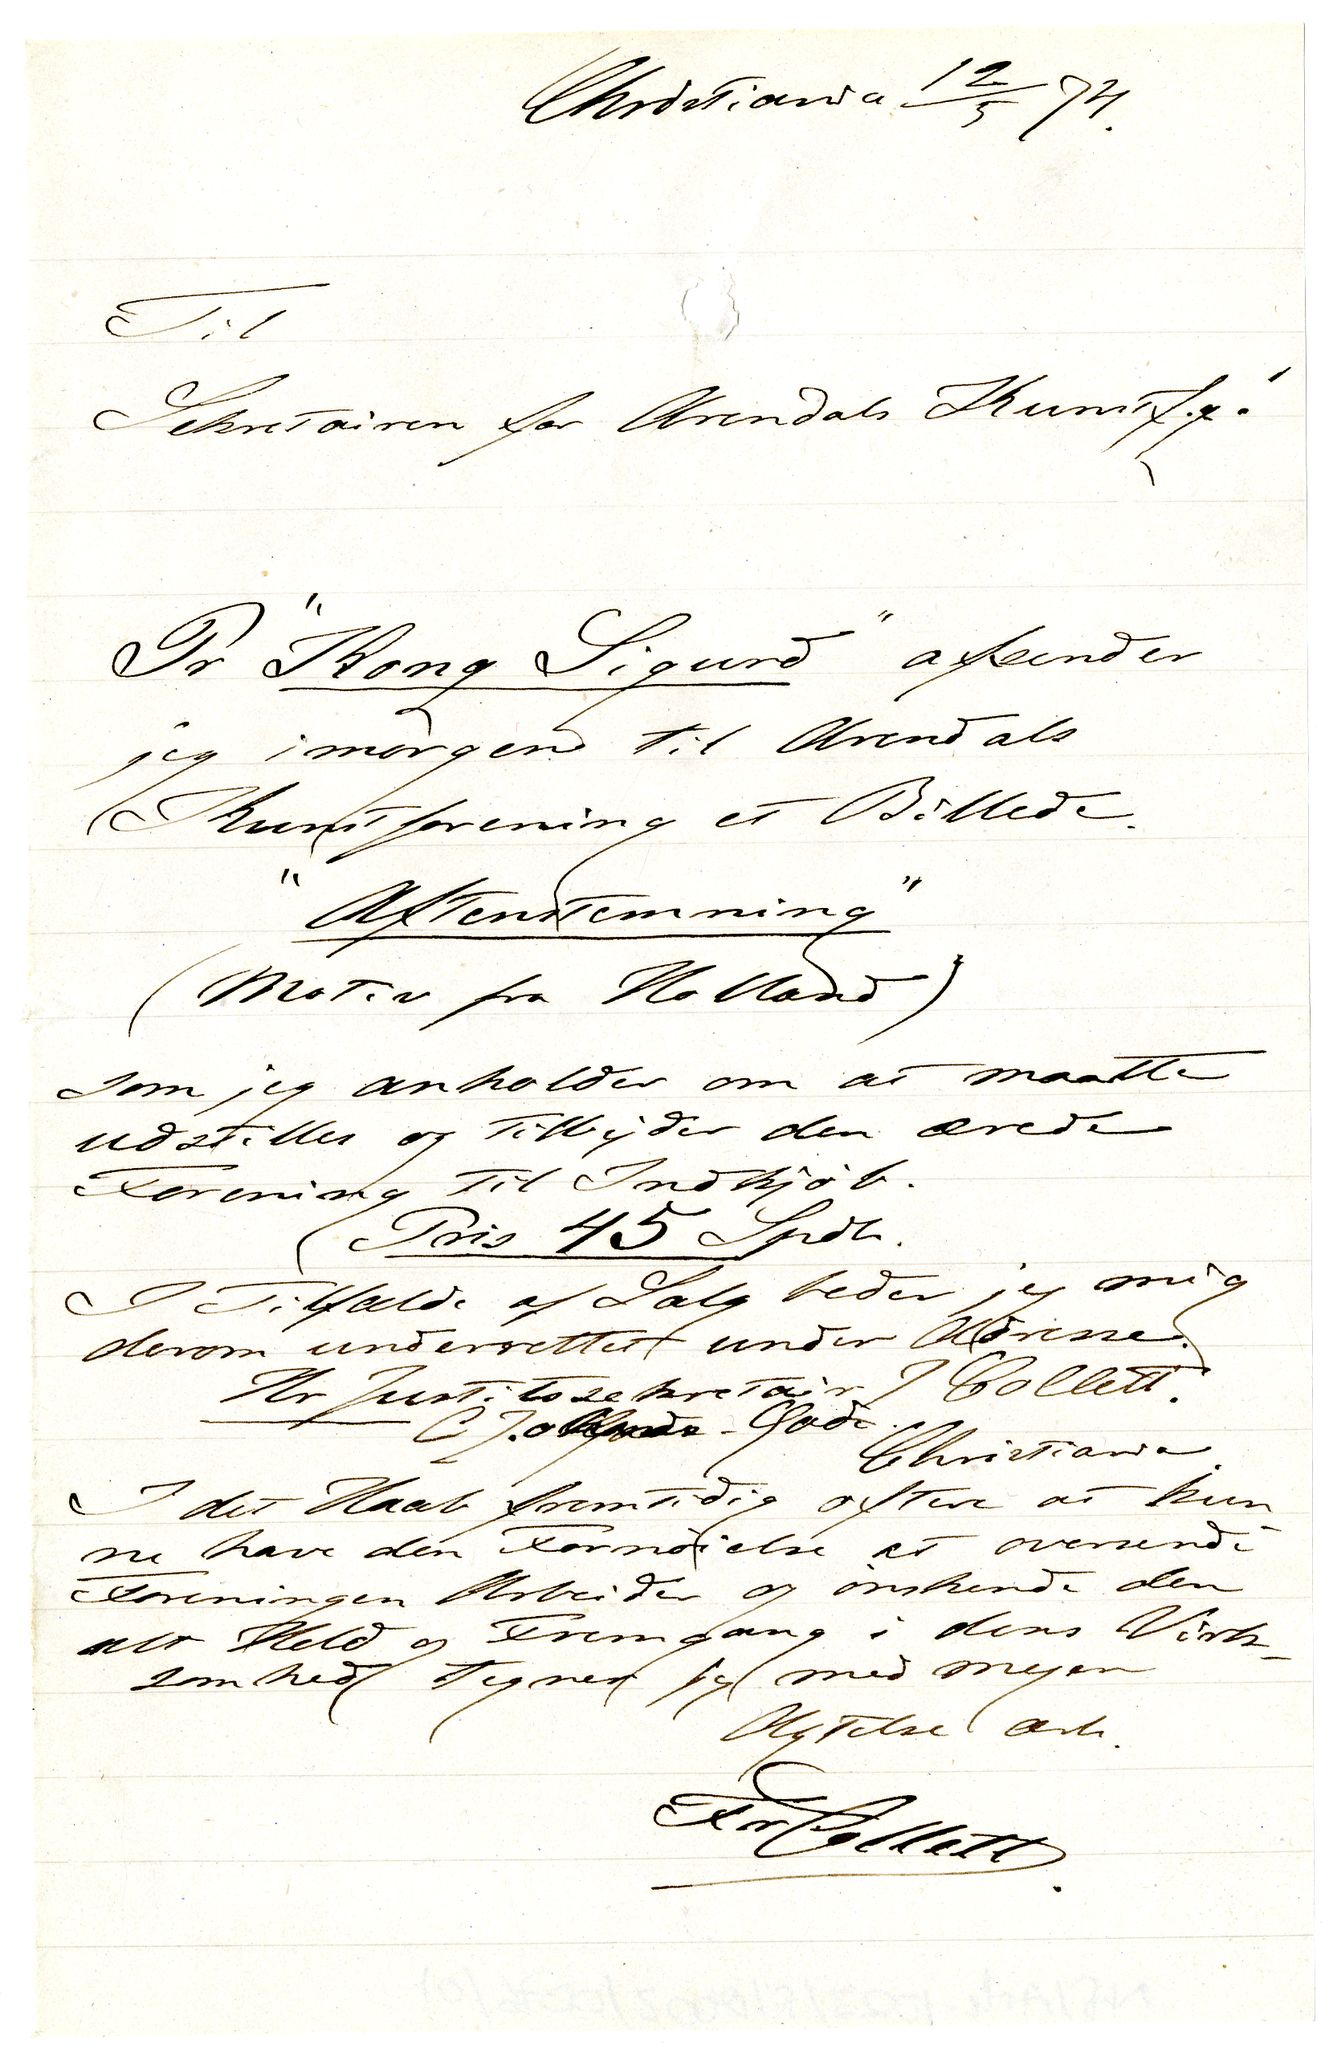 Christiania 12/5 74.
Til
Sekretairen for Arendals Kunstf.g.
Pr "Kong Sigurd" afsender
jeg imorgen til Arendals
Kunstforening et Billede.
"Aftenstemning"
(Motiv fra Holland)
som jeg anholder om at maatte
udstilles og tilbyder den ærede
Forening til Indkjøb.
Pris 45 Spdl.
I Tilfælde af Salg beder jeg mig
derom underrettet under Adresse.
Hr Justitssekretair J Collett.
Gade.
Christiania.
I det Haab fremtidig oftere at kun
ne have den Fornøielse at oversende
Foreningen Arbeider og ønskende den
alt Held og Fremgang i dens Virk-
somhed tegner jeg med megen
Agtelse ærb.
Fr Collett.